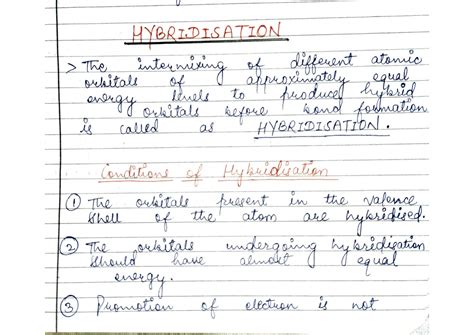 HYBRIDISATION
> The intermixing of different atomic
orbitals of approximately equal
energy levels to produce hybrid
orbitals before bond formation
is called as HYBRIDISATION.
Conditions of Hybridisation
① The orbitals present in the valence
shell of the atom are hybridised.
② The orbitals undergoing hybridisation
should have almost equal
energy.
③ Promotion of electron is not